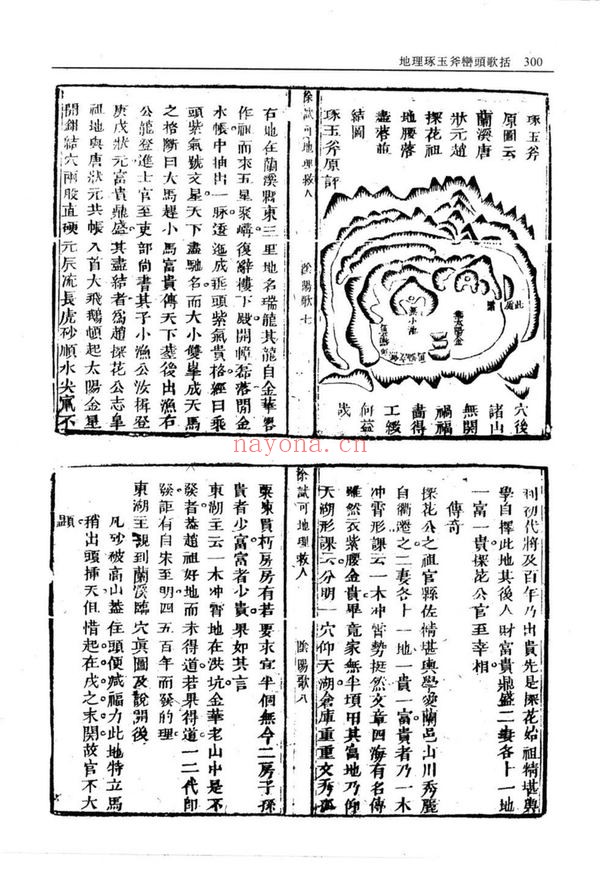 地理琢玉斧巒頭歌括 300
琢玉斧
原圖云
蘭溪唐
狀元趙
探花祖
地腰落
盡落並
結圖
穴後
諸山
無關
禍福
畵得
工緻
何益
哉
琢玉斧原評
徐試可地理救人
陰陽歌七
右地在蘭溪縣東三里地名瑞龍其龍自金華
作祖而來五星聚講後辭樓下殿開帳磊落開金
水帳中抽出一脉逶迤成垂頭紫氣貴格經曰乘
頭紫氣號文星天下盡馳名而大小雙峯成天馬
之格隋曰大馬趕小馬富貴傳天下塟後出漁石
公龍登進士官至吏部尚書其子小漁公汝楫登
庚戌狀元富貴鼎盛其盡結者爲趙探花公志皐
祖地與唐狀元共帳入首大飛鵝頓起太陽金星
開鉗結穴兩股直硬元辰流長虎砂順水尖竄不
利初代將及百年乃出貴先是探花始祖精堪輿
學自擇此地其後人財富貴鼎盛二妻各卜一地
一富一貴探花公官至宰相
傳奇
探花公之祖官縣佐精堪輿學愛蘭邑山川秀麗
自衢遷之二妻各卜一地一貴一富貴者乃一木
冲霄形課云一木冲霄勢挺然文章四海有名傳
雖然衣紫腰金貴畢竟家無半頃田其富地乃仰
天湖形課云分明一穴仰天湖倉庫重重文秀
徐試可地理救人
陰陽歌八
粟東貫朽房房有若要求官半個無今二房子孫
貴者少富富者少貴果如其言
東湖主云一木冲霄地在洪坑金華老山中是不
發者葢趙祖好地而未得道若果得道一二代卽
發詎有自宋至明四五百年而發的理
東湖主親到蘭溪臨穴眞圖及說開後
凡砂被高山葢住頭便减福力此地特立馬
稍出頭揷天但惜起在戌之末開故官不大
顯
nayona.cn